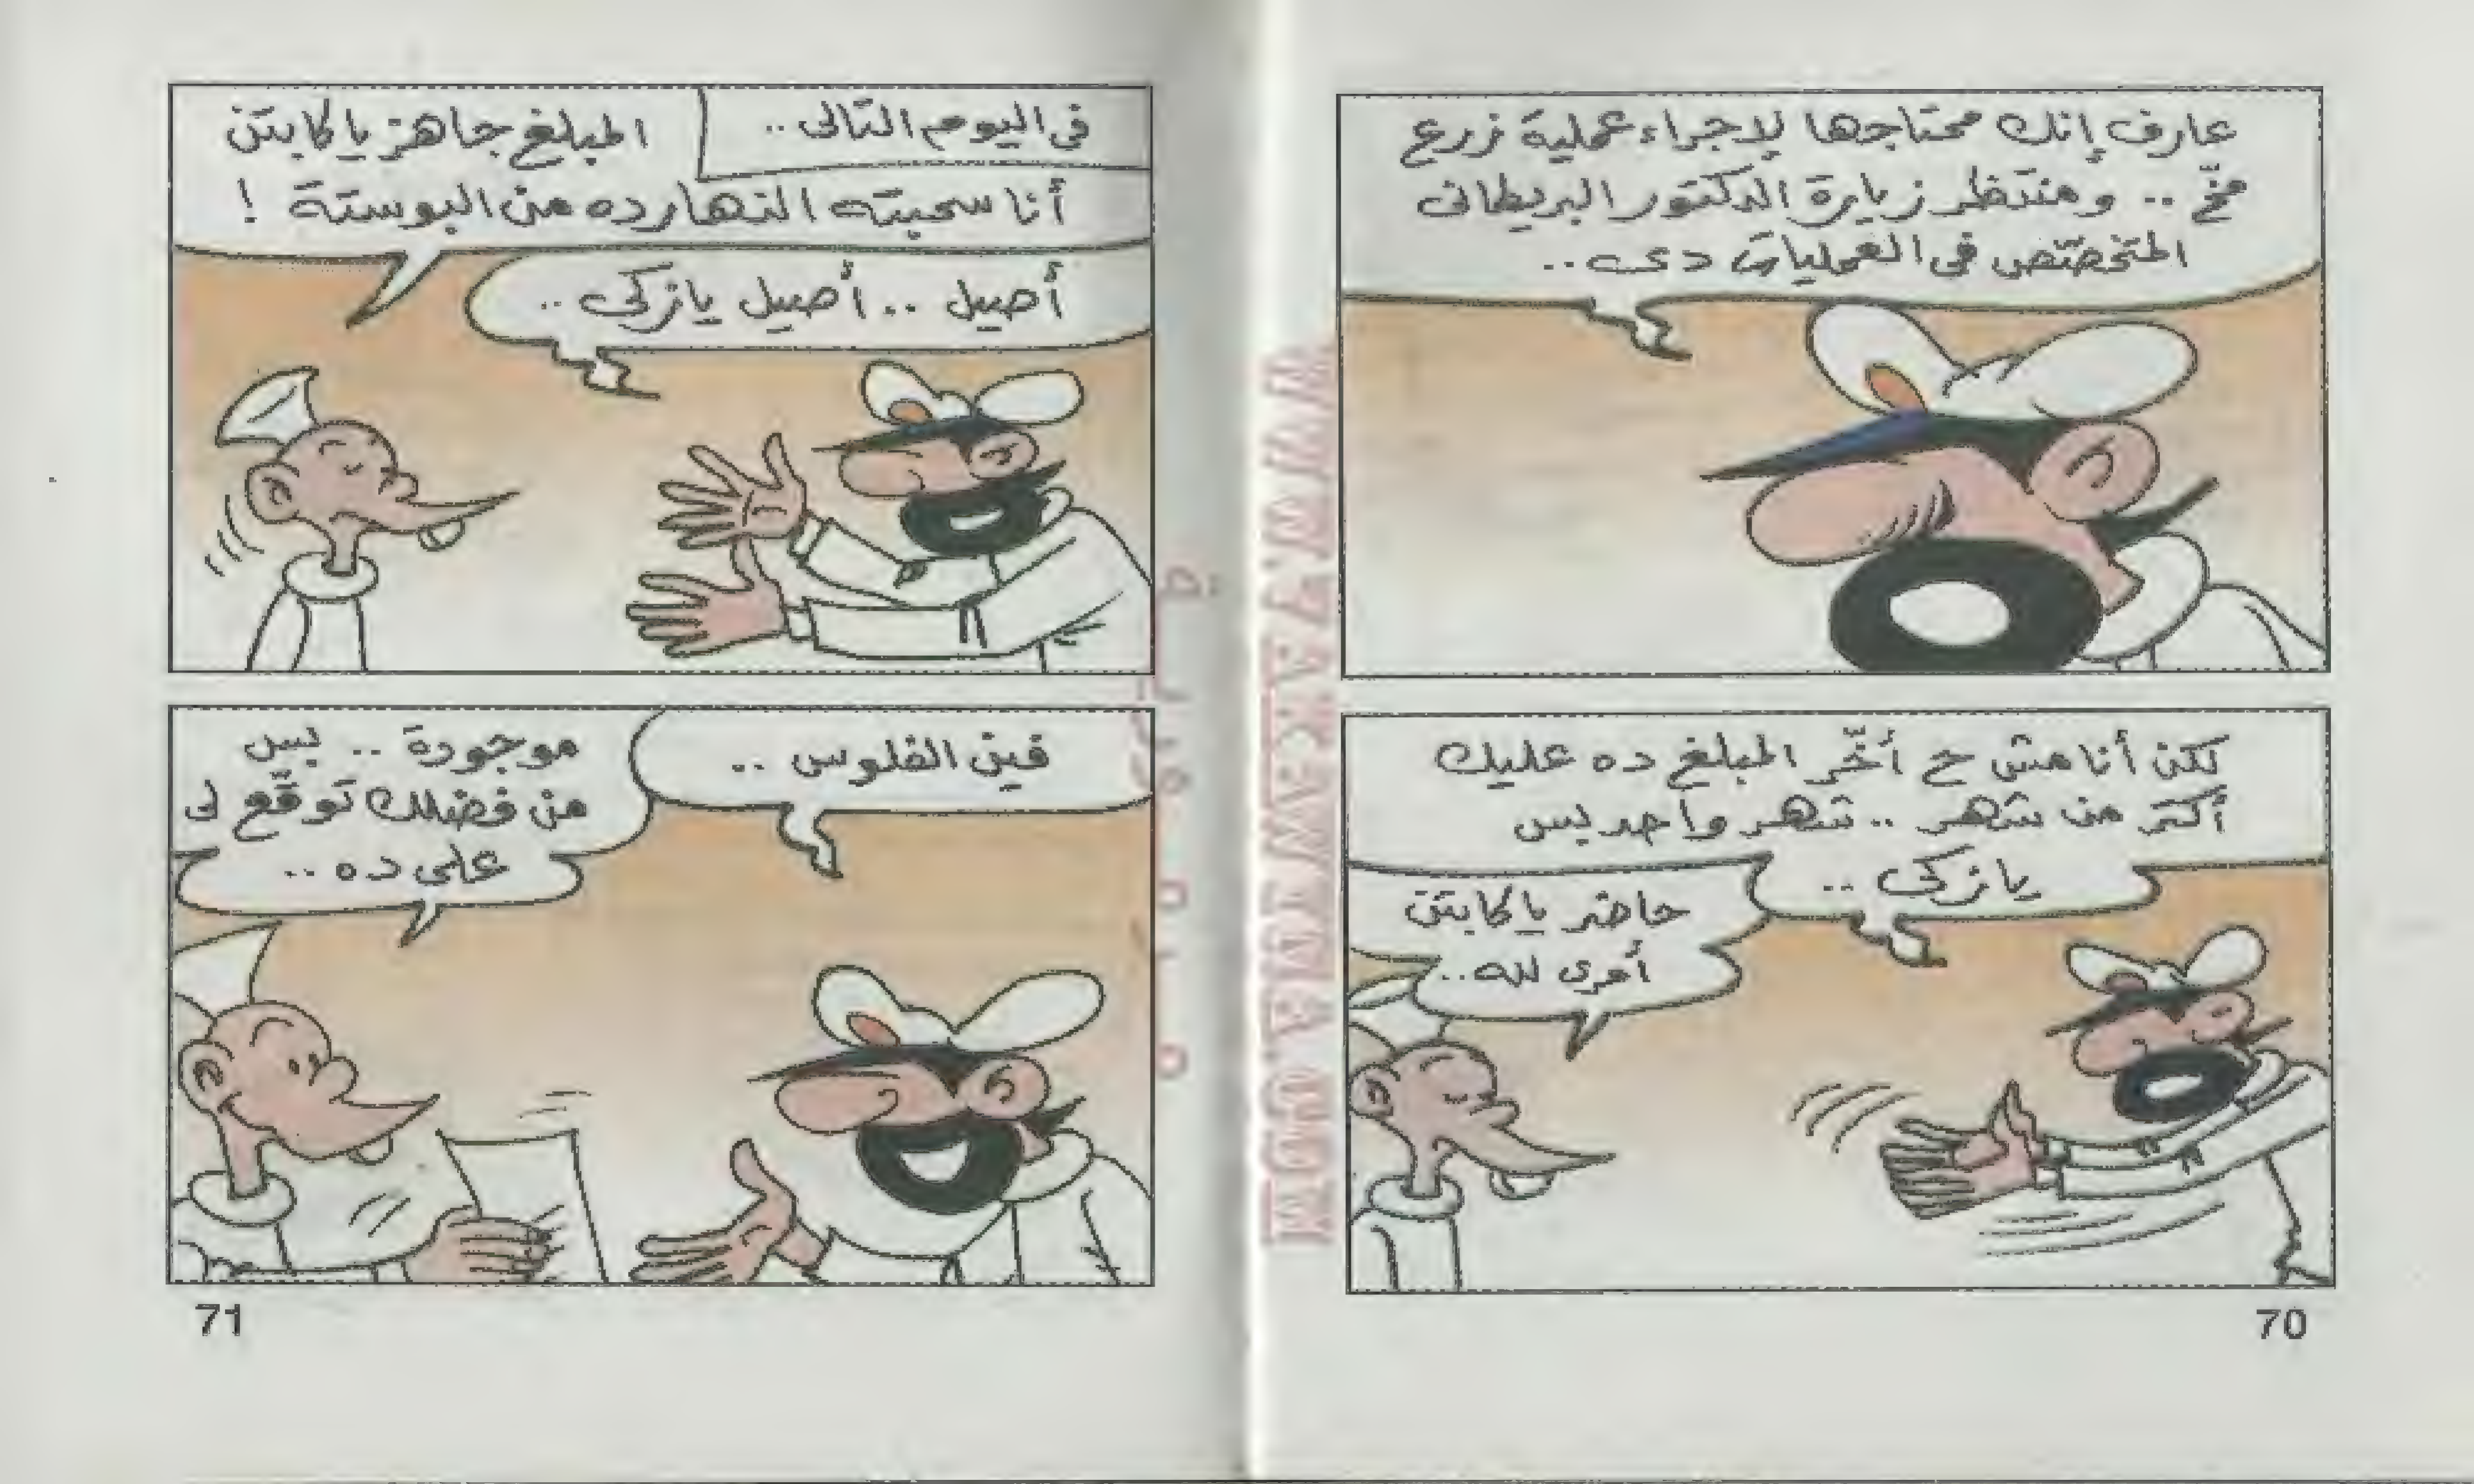 عارف إنك محتاجها لإجراء عملية زرع
مخّ .. ومنتظر زيارة الدكتور البريطانى
المتخصّص فى العمليات دى ..
لكن أنا مش ح أخّر المبلغ ده عليك
أكتر من شهر .. شهر واحد بس
يا زكى ..
حاضر يا كابتن
أمرى لله ..
70
فى اليوم التالى ..
المبلغ جاهز يا كابتن
أنا سحبته النهارده من البوستة !
أصيل .. أصيل يا زكى ..
فين الفلوس ..
موجودة .. بس
من فضلك توقّع لى
على ده ..
71